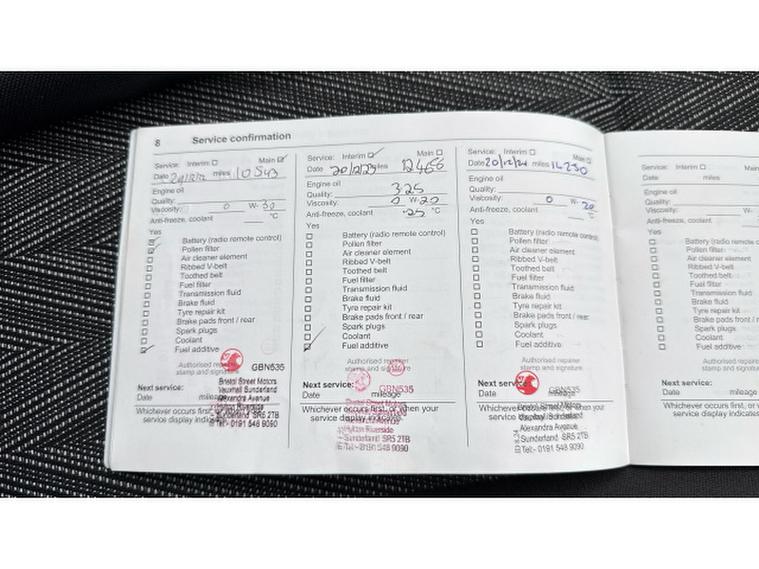 8 Service confirmation
Service: Interim Main
Date miles 10543
Engine oil
Quality:
Viscosity: 0 W- 30
Anti-freeze, coolant °C
Yes
Battery (radio remote control)
Pollen filter
Air cleaner element
Ribbed V-belt
Toothed belt
Fuel filter
Transmission fluid
Brake fluid
Tyre repair kit
Brake pads front / rear
Spark plugs
Coolant
Fuel additive
Authorised repairer
stamp and signature
GBN535
Next service:
Date mileage
Bristol Street Motors
Vauxhall Sunderland
Alexandra Avenue
Riverside
Sunderland SR5 2TB
Tel:- 0191 548 9090
Whichever occurs first, or when
service display indicates
Service: Interim Main
Date 20/12/23 miles 12466
Engine oil
Quality: 325
Viscosity: 0 W- 20
Anti-freeze, coolant -25 °C
Yes
Battery (radio remote control)
Pollen filter
Air cleaner element
Ribbed V-belt
Toothed belt
Fuel filter
Transmission fluid
Brake fluid
Tyre repair kit
Brake pads front / rear
Spark plugs
Coolant
Fuel additive
Authorised repairer
stamp and signature
GBN535
Next service:
Date mileage
Whichever occurs first, or when your
service display indicates
Riverside
Sunderland SR5 2TB
Tel:- 0191 548 9090
Service: Interim Main
Date 20/12/24 miles 14230
Engine oil
Quality:
Viscosity: 0 W- 20
Anti-freeze, coolant °C
Yes
Battery (radio remote control)
Pollen filter
Air cleaner element
Ribbed V-belt
Toothed belt
Fuel filter
Transmission fluid
Brake fluid
Tyre repair kit
Brake pads front / rear
Spark plugs
Coolant
Fuel additive
Authorised repairer
stamp and signature
GBN535
Next service:
Date mileage
Whichever occurs first, or when your
service display indicates
Alexandra Avenue
Sunderland SR5 2TB
Tel:- 0191 548 9090
Service: Interim Main
Date miles
Engine oil
Quality:
Viscosity: W-
Anti-freeze, coolant °C
Yes
Battery (radio remote control)
Pollen filter
Air cleaner element
Ribbed V-belt
Toothed belt
Fuel filter
Transmission fluid
Brake fluid
Tyre repair kit
Brake pads front / rear
Spark plugs
Coolant
Fuel additive
Authorised repairer
stamp and signature
Next service:
Date mileage
Whichever occurs first, or when
service display indicates